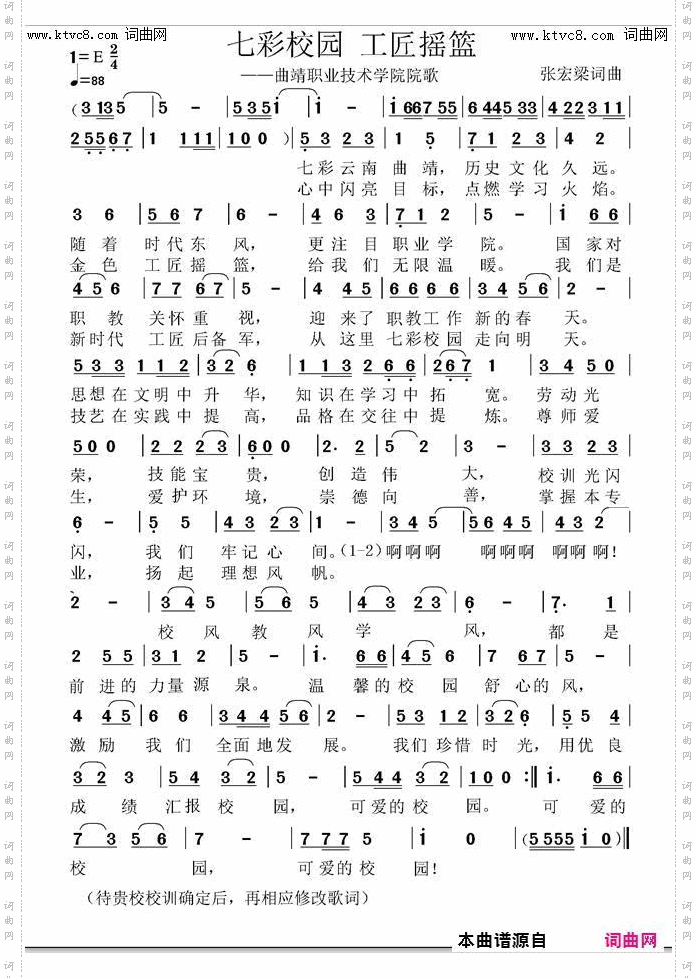 www.ktvc8.com 词曲网
七彩校园 工匠摇篮
www.ktvc8.com 词曲网
1=E 2/4
♩=88
——曲靖职业技术学院院歌
张宏梁词曲
(3 135 | 5 - | 5351 | i - | i 66755 | 644533 | 422311 |
25567 | 1 111 | 100) | 5 3 23 | 1 5 | 71 23 | 4 2 |
七彩云南曲靖，历史文化久远。
心中闪亮目标，点燃学习火焰。
3 6 | 567 | 6 - | 4 63 | 712 | 5 - | i 66 |
随着时代东风，更注目职业学院。国家对
金色工匠摇篮，给我们无限温暖。我们是
456 | 77 67 | 5 - | 4 45 | 6666 | 3456 | 2 - |
职教关怀重视，迎来了职教工作新的春天。
新时代工匠后备军，从这里七彩校园走向明天。
533 112 | 32 6 | 113 266 | 267 | 1 - | 3 450 |
思想在文明中升华，知识在学习中拓宽。劳动光
技艺在实践中提高，品格在交往中提炼。尊师爱
500 | 22 23 | 600 | 2· 2 | 5 2 | 3 - | 3323 |
荣，技能宝贵，创造伟大，校训光闪
生，爱护环境，崇德向善，掌握本专
6 - | 5 5 | 43 23 | 1 - | 345 | 5645 | 432 |
闪，我们牢记心间。(1-2)啊啊啊 啊啊啊 啊啊啊！
业，扬起理想风帆。
2 - | 345 | 5 50 | 43 23 | 6 - | 7· 1 |
校风教风学风，都是
2 55 | 332 | 5 - | i· 66 | 645 | 7 667 | 5 - |
前进的力量源泉。温馨的校园舒心的风，
4 45 | 6 6 | 344 456 | 2 - | 53 12 | 326 | 55 4 |
激励我们全面地发展。我们珍惜时光，用优良
32 3 | 54 32 | 5 - | 544 32 | 100 :‖ i· 66 |
成绩汇报校园，可爱的校园。可爱的
73 56 | 7 - | 777 5 | i 0 | (5555 i 0)‖
校园，可爱的校园！
(待贵校校训确定后，再相应修改歌词)
本曲谱源自 词曲网